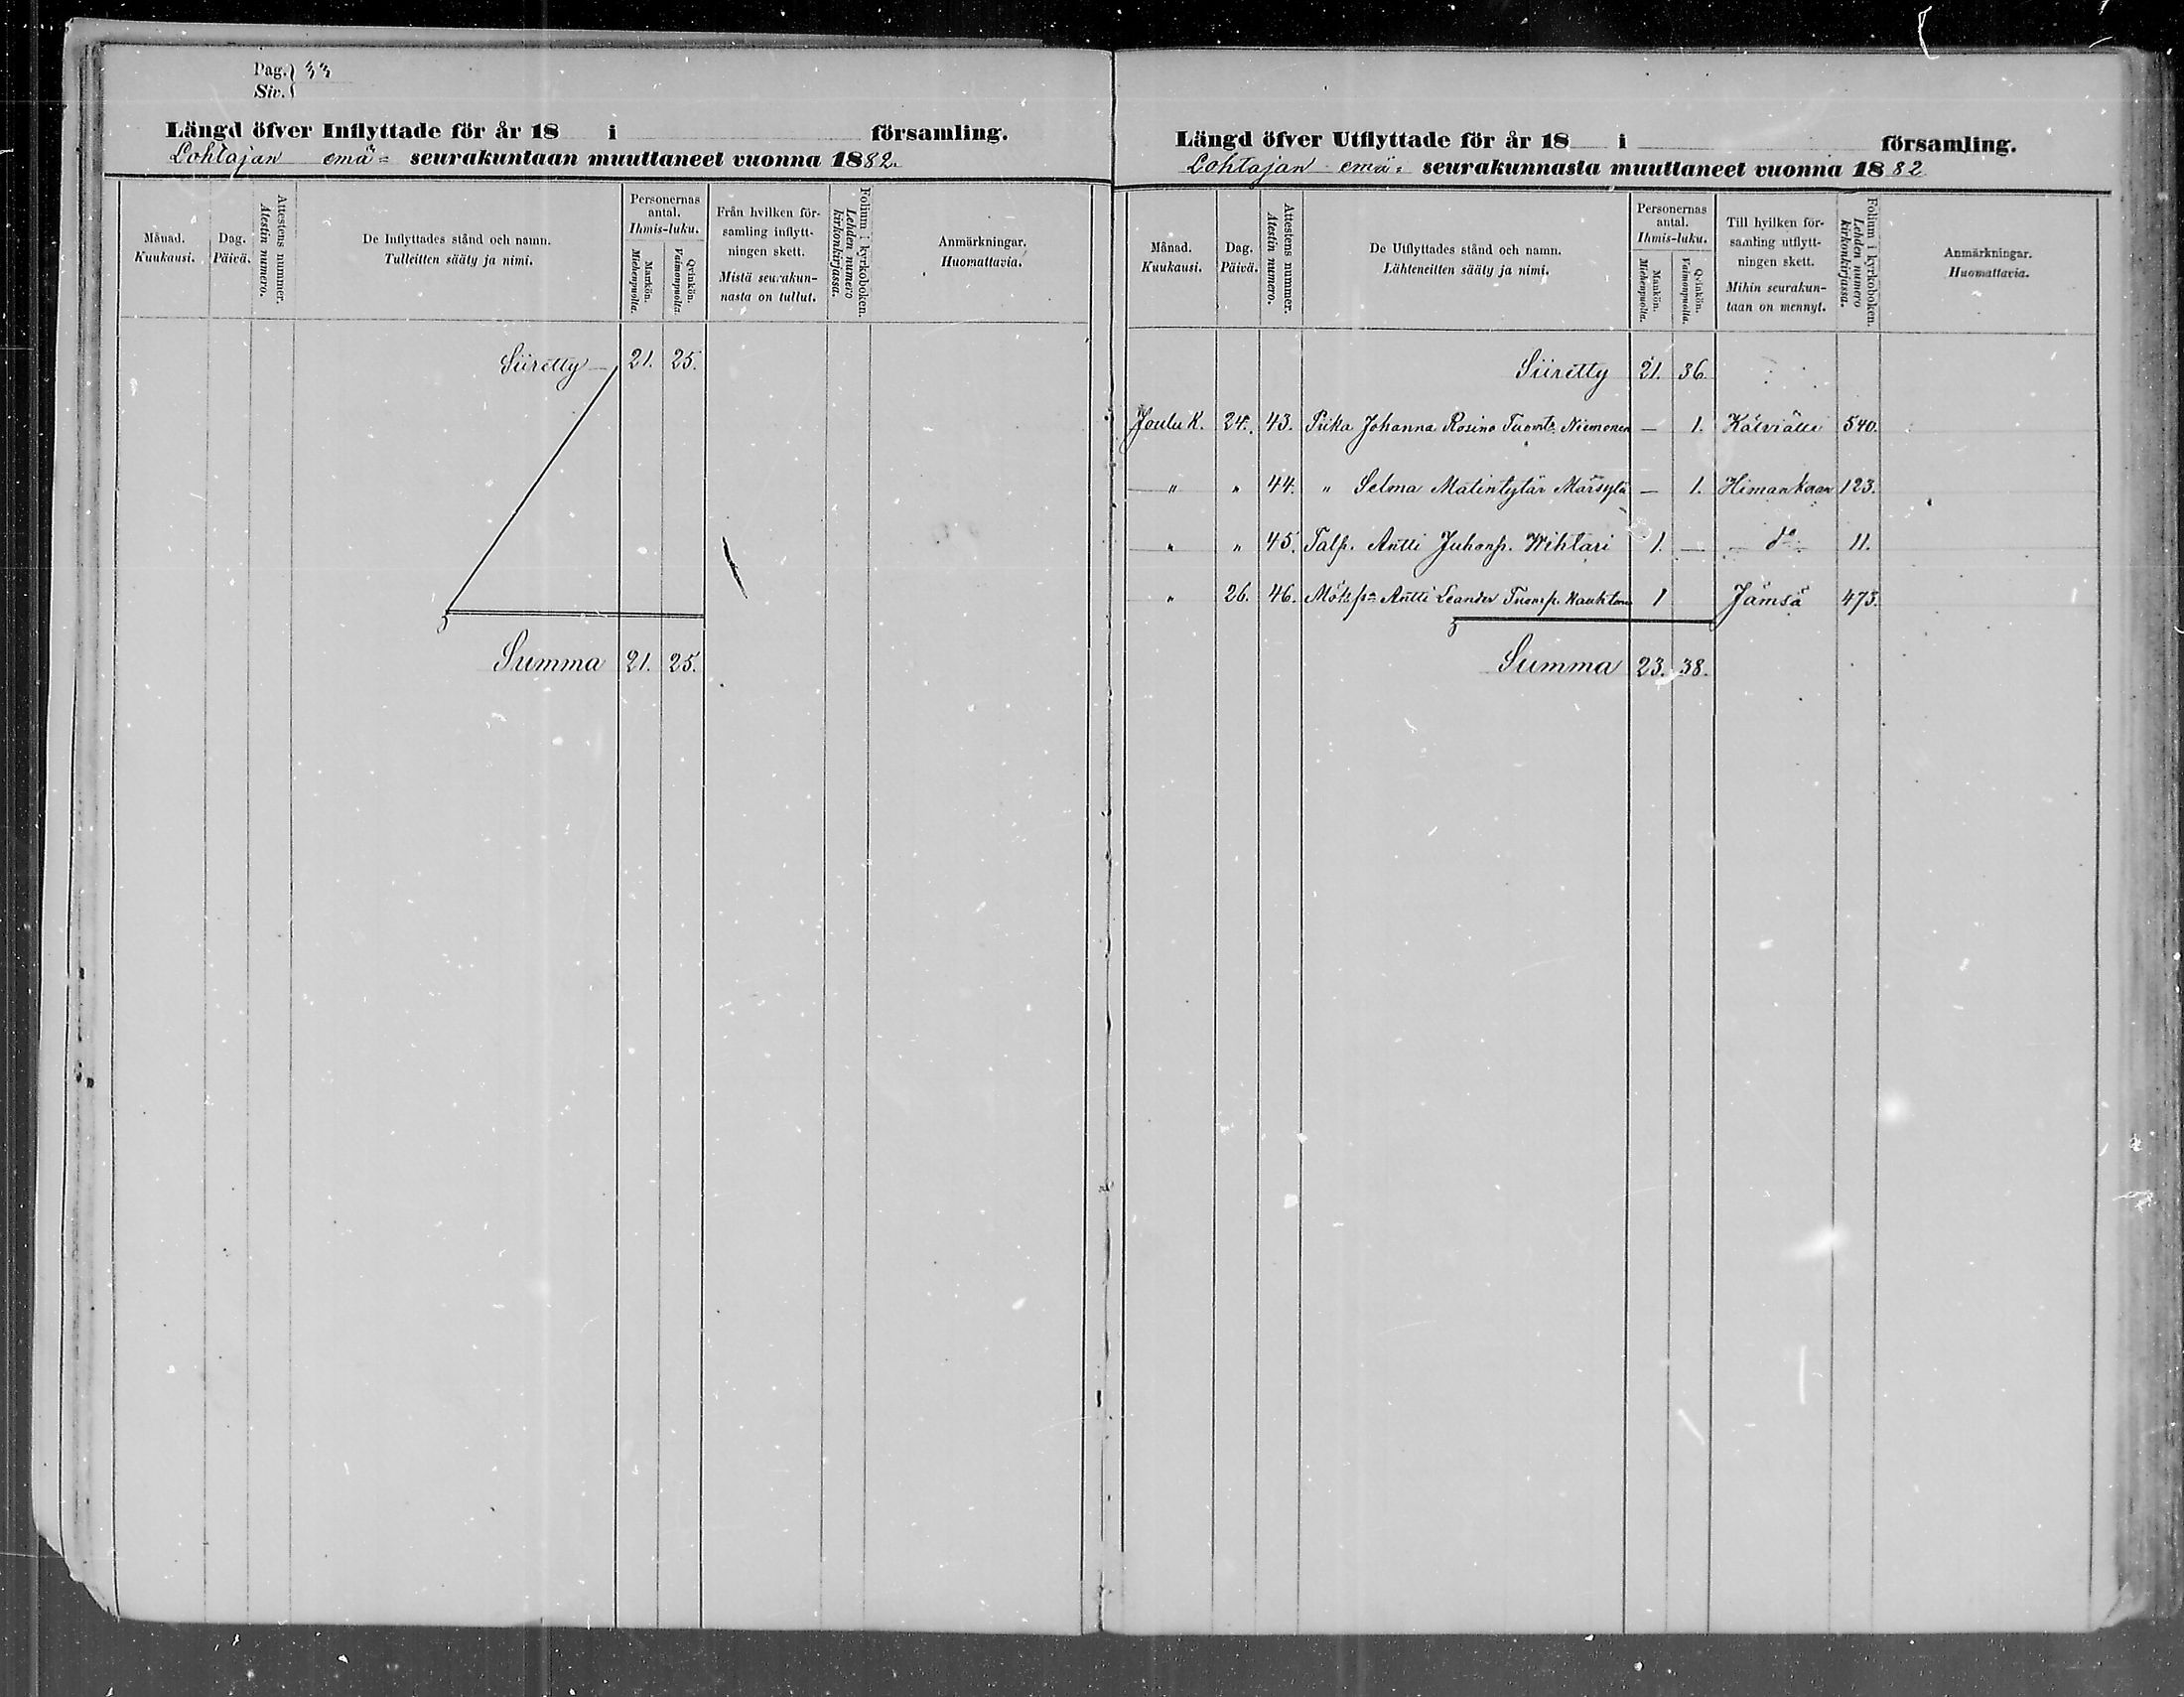 Pag. } 33
Siv. }
Längd öfver Inflyttade för år 18 i församling.
Lohtajan emä= seurakuntaan muuttaneet vuonna 1882.
Månad. Kuukausi.
Dag. Päivä.
Attestens nummer. Atestin numero.
De Inflyttades stånd och namn. Tulleitten sääty ja nimi.
Personernas antal. Ihmis-luku.
Mankön. Miehenpuolta.
Qvinkön. Vaimonpuolta.
Från hvilken för-
samling inflytt-
ningen skett.
Mistä seurakun-
nasta on tullut.
Folium i kyrkoboken. Lehden numero kirkonkirjassa.
Anmärkningar. Huomattavia.
Siiretty — 21. 25.
Summa 21. 25.
Längd öfver Utflyttade för år 18 i församling.
Lohtajan emä= seurakunnasta muuttaneet vuonna 1882
Månad. Kuukausi.
Dag. Päivä.
Attestens nummer. Atestin numero.
De Utflyttades stånd och namn. Lähteneitten sääty ja nimi.
Personernas antal. Ihmis-luku.
Mankön. Miehenpuolta.
Qvinkön. Vaimonpuolta.
Till hvilken för-
samling utflytt-
ningen skett.
Mihin seurakun-
taan on mennyt.
Folium i kyrkoboken. Lehden numero kirkonkirjassa.
Anmärkningar. Huomattavia.
Siiretty 21. 36.
Joulu K. 24. 43. Piika Johanna Rosina Niemonen — 1. Kälviälle 540.
" " 44. " Selma Matintytär Märsylä — 1. Himankaan 123.
" " 45. Talp. Antti Juhonp. Wihtari 1. — do 11.
" 26. 46. Antti Leander Tuomp. 1 Jämsä 473.
Summa 23. 38.